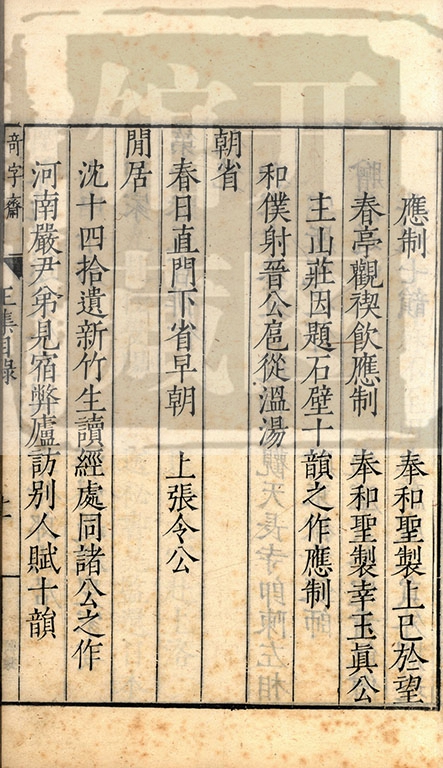 應制　奉和聖製上巳於望
春亭觀禊飲應制　奉和聖製幸玉眞公
主山莊因題石壁十韻之作應制
和僕射晉公扈從溫湯
朝省
春日直門下省早朝　上張令公
閒居
沈十四拾遺新竹生讀經處同諸公之作
河南嚴尹弟見宿弊廬訪別人賦十韻
奇字齋
王集目錄